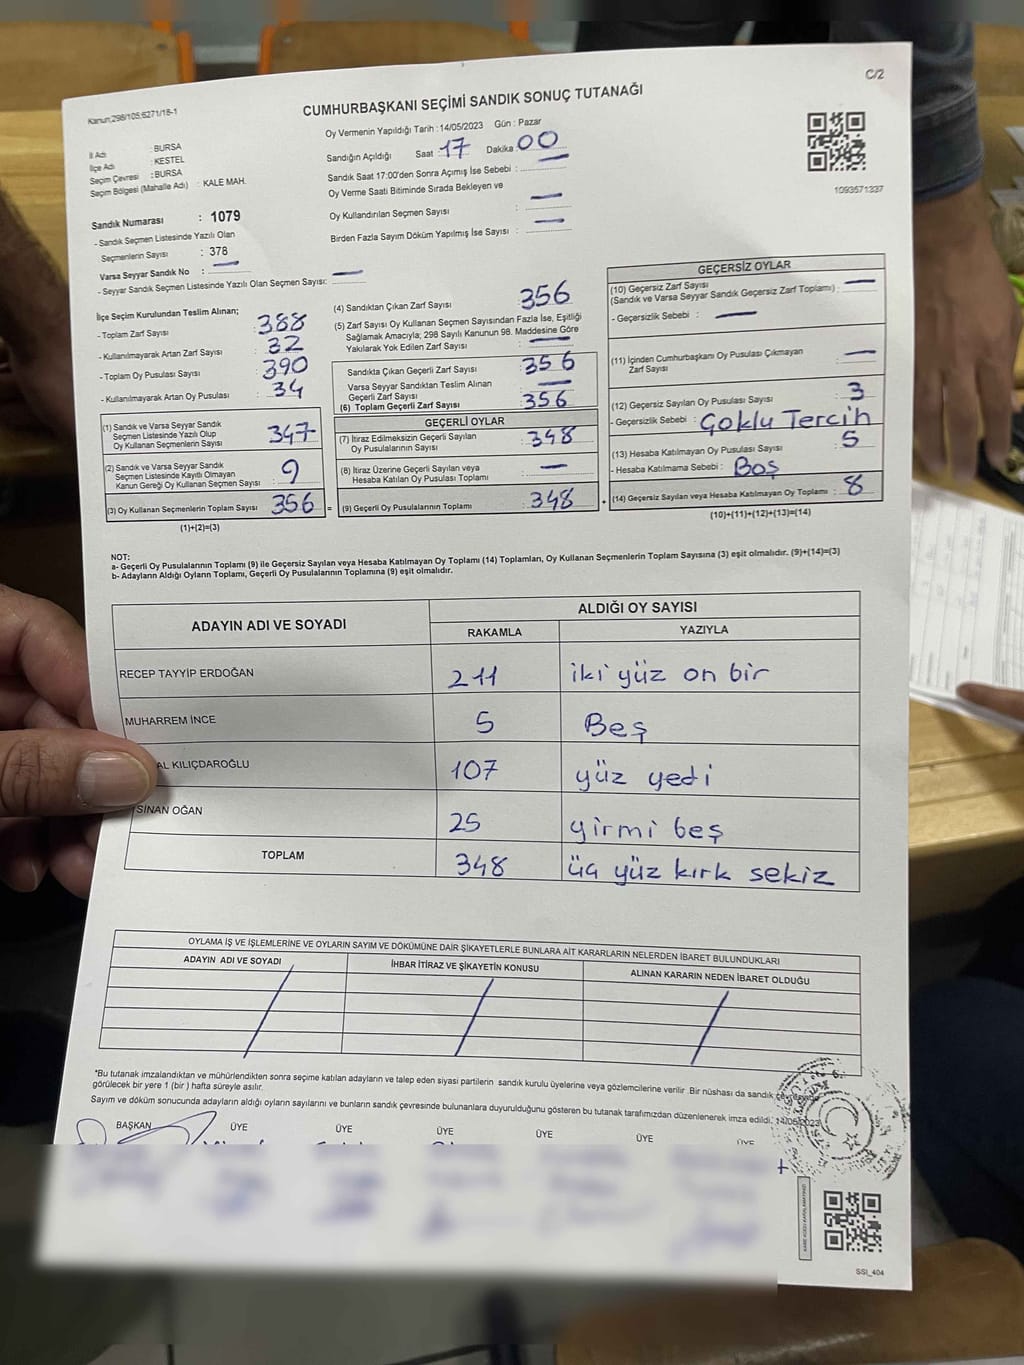 C/2
Kanun;298/105;6271/18-1
CUMHURBAŞKANI SEÇİMİ SANDIK SONUÇ TUTANAĞI
Oy Vermenin Yapıldığı Tarih :14/05/2023 Gün : Pazar
İl Adı : BURSA
İlçe Adı : KESTEL
Seçim Çevresi : BURSA
Seçim Bölgesi (Mahalle Adı) : KALE MAH.
Sandığın Açıldığı Saat : 17 Dakika : 00
Sandık Saat 17:00'den Sonra Açımış İse Sebebi : —
Oy Verme Saati Bitiminde Sırada Bekleyen ve
Oy Kullandırılan Seçmen Sayısı : —
Birden Fazla Sayım Döküm Yapılmış İse Sayısı : —
1093571337
Sandık Numarası : 1079
- Sandık Seçmen Listesinde Yazılı Olan
Seçmenlerin Sayısı : 378
Varsa Seyyar Sandık No : —
- Seyyar Sandık Seçmen Listesinde Yazılı Olan Seçmen Sayısı: —
İlçe Seçim Kurulundan Teslim Alınan;
- Toplam Zarf Sayısı : 388
- Kullanılmayarak Artan Zarf Sayısı : 32
- Toplam Oy Pusulası Sayısı : 390
- Kullanılmayarak Artan Oy Pusulası : 34
(1) Sandık ve Varsa Seyyar Sandık
Seçmen Listesinde Yazılı Olup
Oy Kullanan Seçmenlerin Sayısı : 347
(2) Sandık ve Varsa Seyyar Sandık
Seçmen Listesinde Kayıtlı Olmayan
Kanun Gereği Oy Kullanan Seçmen Sayısı : 9
(3) Oy Kullanan Seçmenlerin Toplam Sayısı : 356 =
(1)+(2)=(3)
(4) Sandıktan Çıkan Zarf Sayısı : 356
(5) Zarf Sayısı Oy Kullanan Seçmen Sayısından Fazla İse, Eşitliği
Sağlamak Amacıyla; 298 Sayılı Kanunun 98. Maddesine Göre
Yakılarak Yok Edilen Zarf Sayısı : —
Sandıkta Çıkan Geçerli Zarf Sayısı : 356
Varsa Seyyar Sandıktan Teslim Alınan
Geçerli Zarf Sayısı : —
(6) Toplam Geçerli Zarf Sayısı : 356
GEÇERLİ OYLAR
(7) İtiraz Edilmeksizin Geçerli Sayılan
Oy Pusulalarının Sayısı : 348
(8) İtiraz Üzerine Geçerli Sayılan veya
Hesaba Katılan Oy Pusulası Toplamı : —
(9) Geçerli Oy Pusulalarının Toplamı : 348 +
GEÇERSİZ OYLAR
(10) Geçersiz Zarf Sayısı
(Sandık ve Varsa Seyyar Sandık Geçersiz Zarf Toplamı) : —
- Geçersizlik Sebebi : —
(11) İçinden Cumhurbaşkanı Oy Pusulası Çıkmayan
Zarf Sayısı : —
(12) Geçersiz Sayılan Oy Pusulası Sayısı : 3
- Geçersizlik Sebebi : Çoklu Tercih
(13) Hesaba Katılmayan Oy Pusulası Sayısı : 5
- Hesaba Katılmama Sebebi : Boş
(14) Geçersiz Sayılan veya Hesaba Katılmayan Oy Toplamı : 8
(10)+(11)+(12)+(13)=(14)
NOT:
a- Geçerli Oy Pusulalarının Toplamı (9) ile Geçersiz Sayılan veya Hesaba Katılmayan Oy Toplamı (14) Toplamları, Oy Kullanan Seçmenlerin Toplam Sayısına (3) eşit olmalıdır. (9)+(14)=(3)
b- Adayların Aldığı Oyların Toplamı, Geçerli Oy Pusulalarının Toplamına (9) eşit olmalıdır.
ADAYIN ADI VE SOYADI ALDIĞI OY SAYISI
RAKAMLA YAZIYLA
RECEP TAYYİP ERDOĞAN 211 iki yüz on bir
MUHARREM İNCE 5 Beş
AL KILIÇDAROĞLU 107 yüz yedi
SİNAN OĞAN 25 yirmi beş
TOPLAM 348 üç yüz kırk sekiz
OYLAMA İŞ VE İŞLEMLERİNE VE OYLARIN SAYIM VE DÖKÜMÜNE DAİR ŞİKAYETLERLE BUNLARA AİT KARARLARIN NELERDEN İBARET BULUNDUKLARI
ADAYIN ADI VE SOYADI İHBAR İTİRAZ VE ŞİKAYETİN KONUSU ALINAN KARARIN NEDEN İBARET OLDUĞU
*Bu tutanak imzalandıktan ve mühürlendikten sonra seçime katılan adayların ve talep eden siyasi partilerin sandık kurulu üyelerine veya gözlemcilerine verilir. Bir nüshası da sandık
görülecek bir yere 1 (bir ) hafta süreyle asılır.
Sayım ve döküm sonucunda adayların aldığı oyların sayılarını ve bunların sandık çevresinde bulunanlara duyurulduğunu gösteren bu tutanak tarafımızdan düzenlenerek imza edildi. 14/05/2023
BAŞKAN ÜYE ÜYE ÜYE ÜYE ÜYE ÜYE
SSI_404